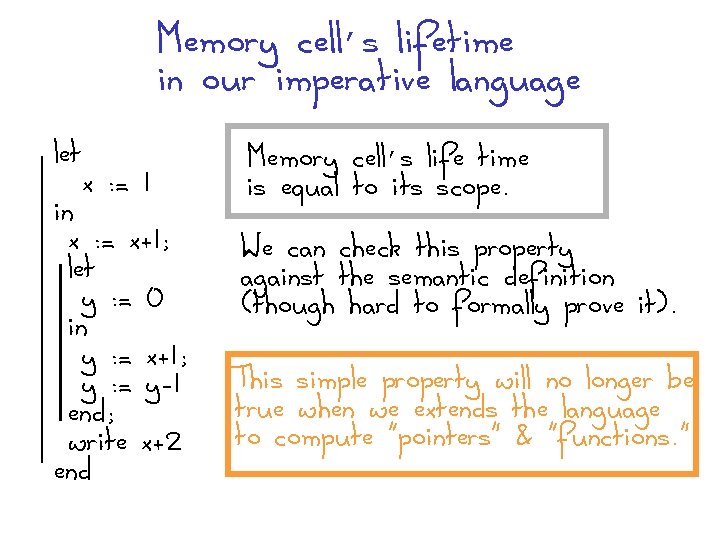 Memory cell's lifetime
in our imperative language
let
x := 1
in
x := x+1;
let
y := 0
in
y := x+1;
y := y-1
end;
write x+2
end
Memory cell's life time
is equal to its scope.
We can check this property
against the semantic definition
(though hard to formally prove it).
This simple property will no longer be
true when we extends the language
to compute "pointers" & "functions."